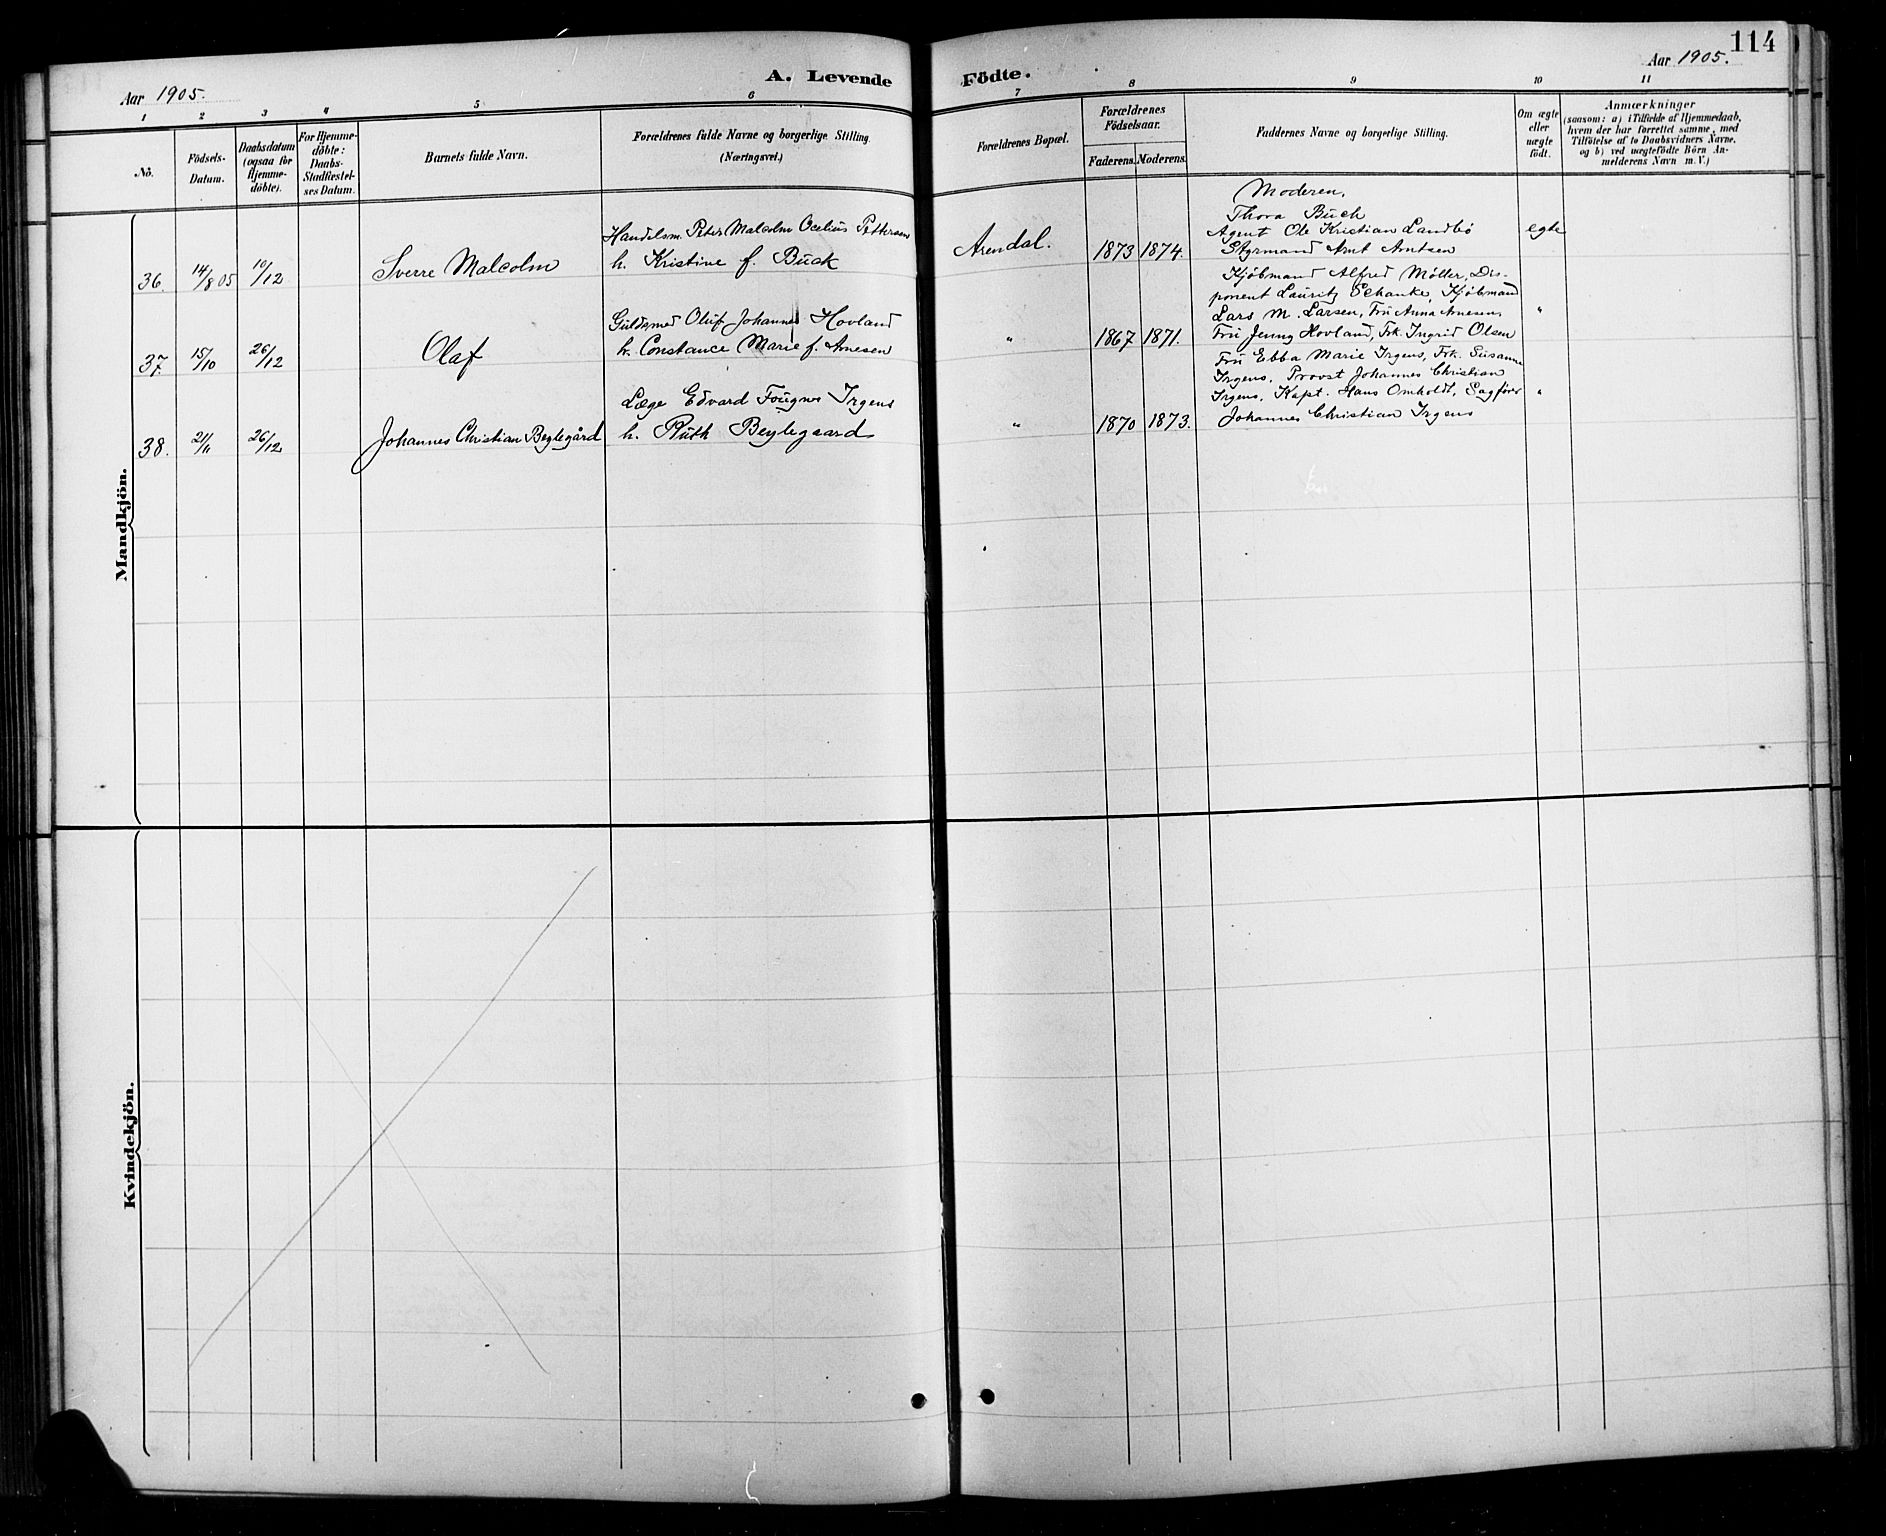 114
Aar 1905.
A. Levende
Födte.
Aar 1905.
1 2 3 4 5 6 7 8 9 10 11
No.
Födsels-
Datum.
Daabsdatum
(ogsaa for
Hjemme-
döbte).
For Hjemme-
döbte:
Daabs-
Stadfæstel-
ses Datum.
Barnets fulde Navn.
Forældrenes fulde Navne og borgerlige Stilling.
(Næringsvei.)
Forældrenes Bopæl.
Forældrenes
Födselsaar.
Faderens. Moderens.
Faddernes Navne og borgerlige Stilling.
Om ægte
eller
uægte
födt.
Anmærkninger
(saasom: a) i Tilfælde af Hjemmedaab,
hvem der har forrettet samme, med
Tilföielse af to Daabsvidners Navne,
og b) ved uægtefödte Börn An-
melderens Navn m. V.)
Mandkjön.
36. 14/8 05 10/12 Sverre Malcolm
Handelsm. Peter Malcolm Ocelius Pettersen
h. Kristine f. Buck
Arendal. 1873 1874.
Moderen,
Thora Buch
Agent Ole Kristian Landbö
Styrmand Arnt Arntsen
egte
37. 15/10 26/12 Olaf
Guldsmed Oluf Johannes Hovland
h. Constance Marie f. Arnesen
" 1867 1871.
Kjöbmand Alfred Möller, Dis-
ponent Lauritz Schanke, Kjöbmand
Lars M. Larsen, Fru Anna Arnesen,
Fru Jenny Hovland, Frk. Ingrid Olsen
"
38. 21/11 26/12 Johannes Christian Beylegård
Læge Edvard Fougner Irgens
h. Ruth Beylegaard
" 1870 1873.
Fru Ebba Marie Irgens, Frk. Susanne
Irgens, Provst Johannes Christian
Irgens, Kapt. Hans Omholdt, Sagförer
Johannes Christian Irgens
"
Kvindekjön.